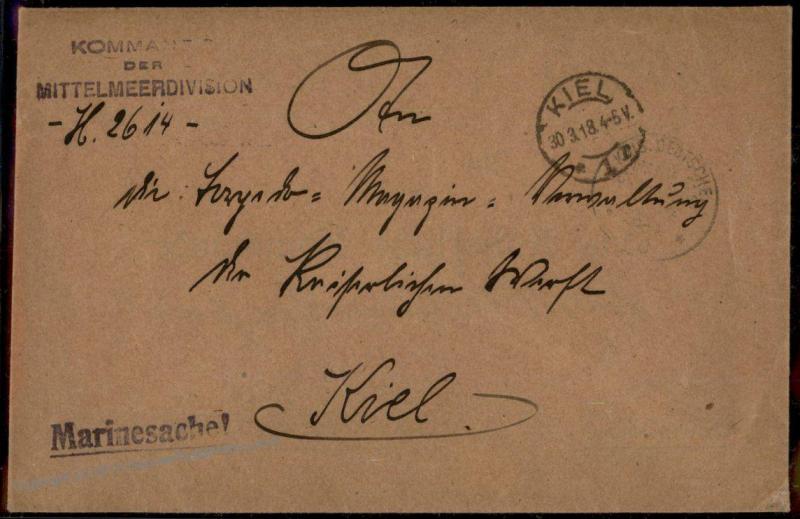 KOMMAN
DER
MITTELMEERDIVISION
- H. 2614 -
An
die Torpedo = Magazin = Verwaltung
der Kaiserlichen Werft
Kiel.
KIEL
30 3.18.4-5V.
* 1 r.
DEUTSCHE
Marinesache!